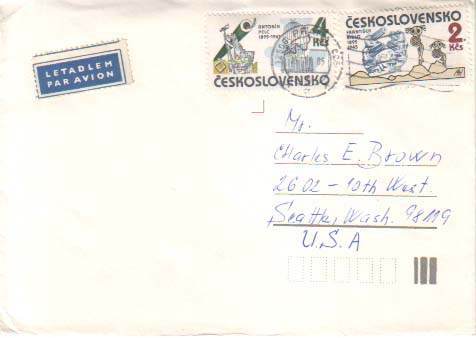 LETADLEM
PAR AVION
ANTONÍN
PELC
1895-1967
4
Kčs
ČESKOSLOVENSKO
ČESKOSLOVENSKO
FRANTIŠEK
1895
2
Kčs
Mr.
Charles E. Brown
2602 - 10th West.
Seattle, Wash. 98119
U.S.A